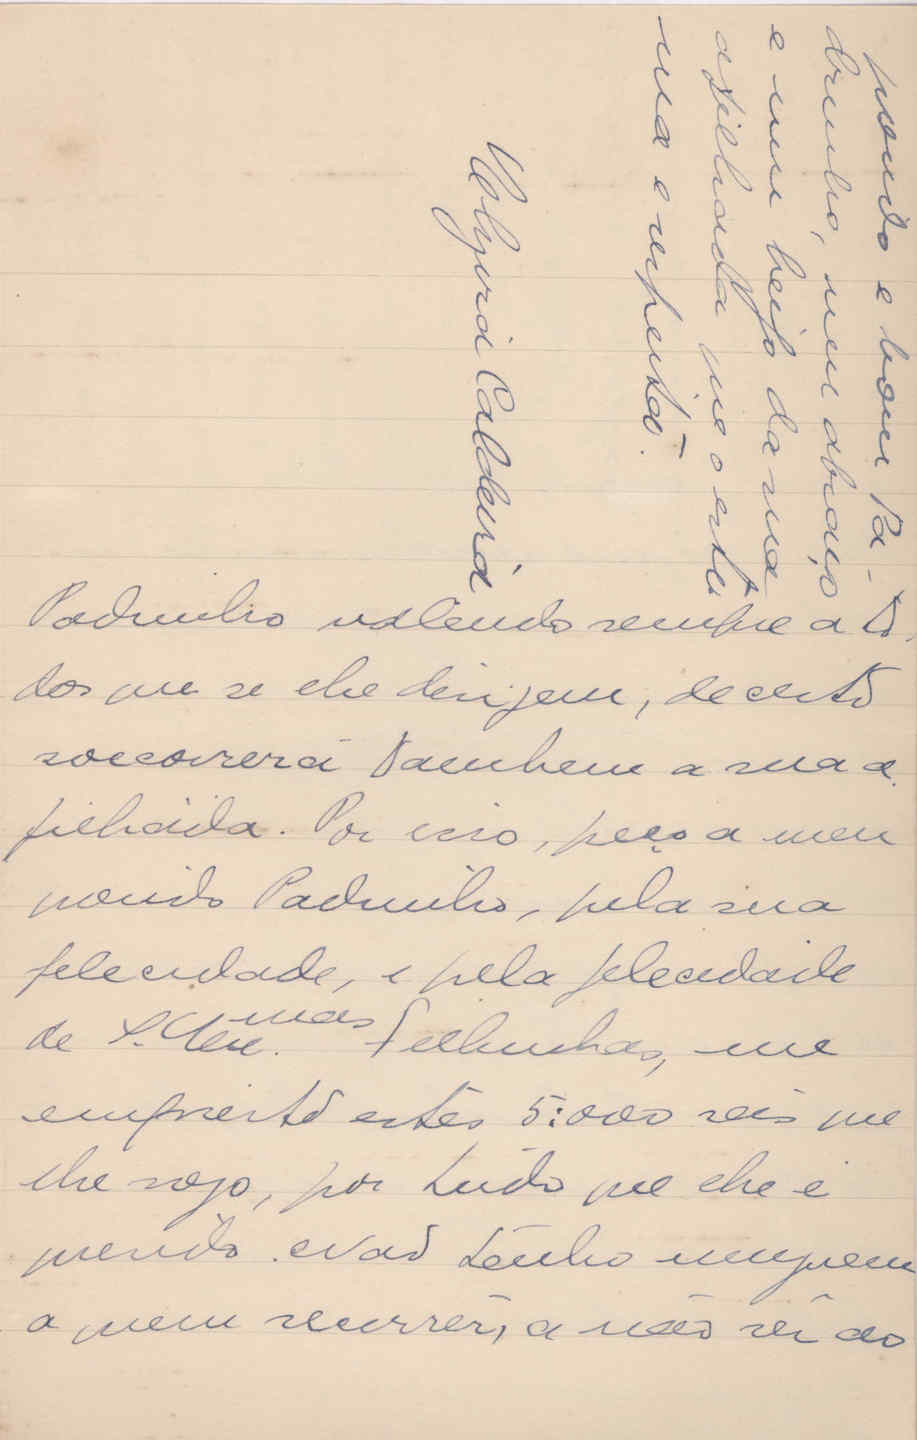 Padrinho valendo sempre a to-
dos que se lhe dirijem, de certo
soccorrerá tambem a sua a-
filháda. Por isso, peço a meu
querido Padrinho, pela sua
felecidade, e pela felecidade
de S. Ex.mas Filhinhas, me
empreste estes 5:000 reis que
lhe rogo, por tudo que lhe é
querido. Não tenho ninguem
a quem recorrer, a não ser ao
querido e bom Pa-
drinho, um abraço
e um beijo da sua
afilhada que o esti-
ma e respeita.
Elzira Caldeira